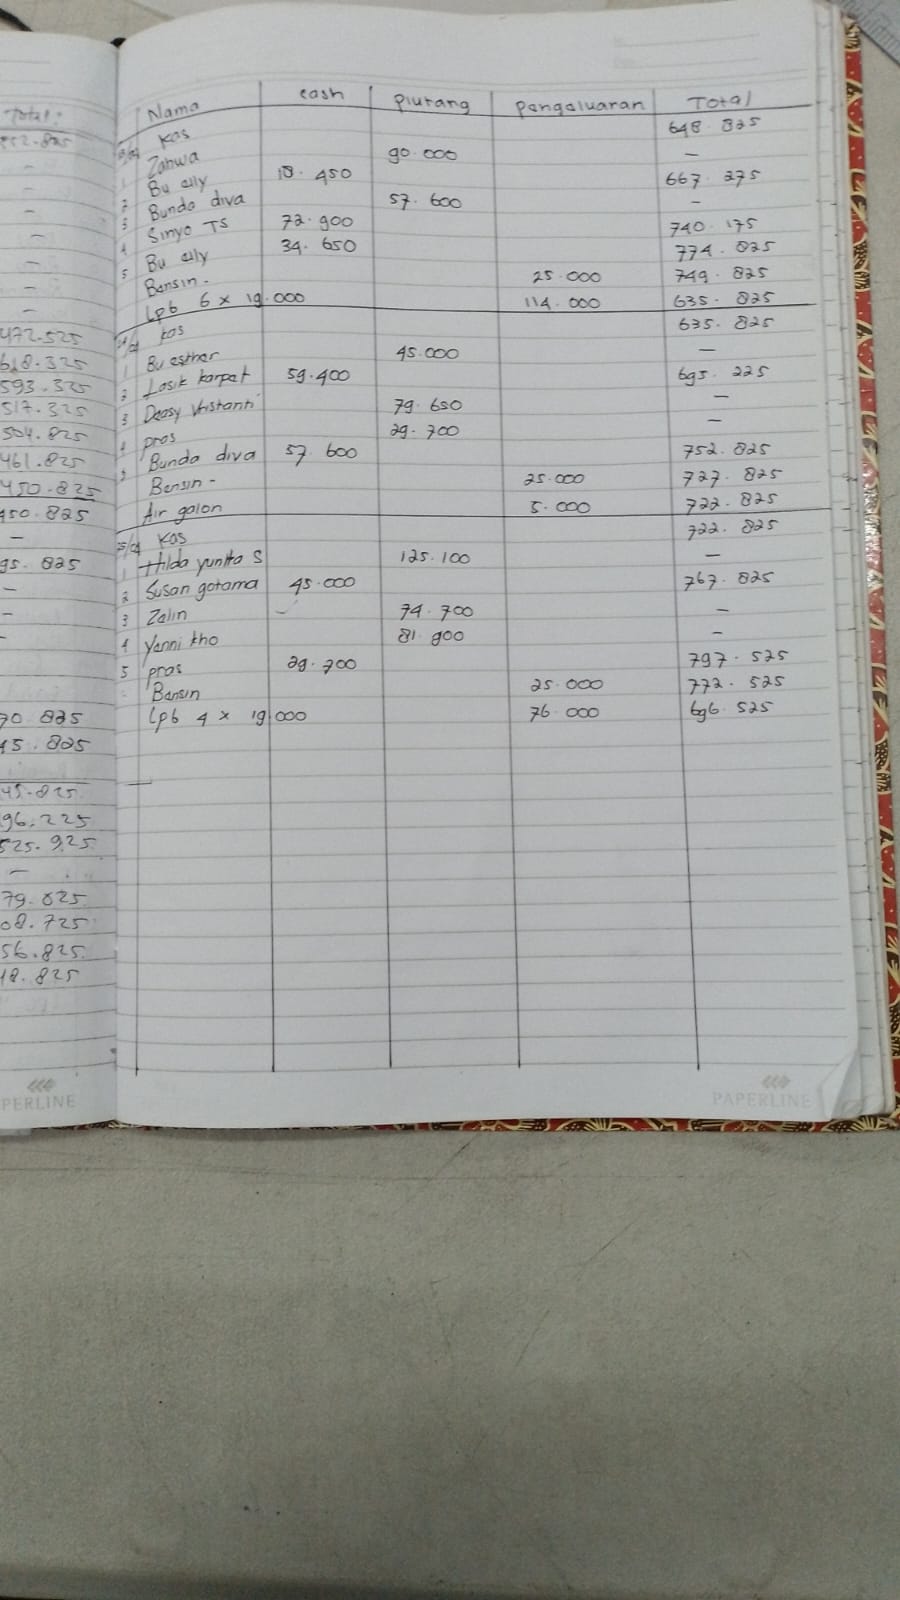 Total:
Nama cash Piutang Pengeluaran Total
Kas 648.825
1 Zahwa 90.000 —
2 Bu elly 18.450 667.275
3 Bunda diva 57.600 -
4 Sinyo TS 72.900 740.175
5 Bu elly 34.650 774.825
Bensin. 25.000 749.825
Lpb 6 x 19.000 114.000 635.825
Kas 635.825
1 Bu esther 45.000 —
2 Losik karpet 59.400 695.225
3 79.650 —
4 pros 29.700 —
5 Bunda diva 57.600 752.825
Bensin - 25.000 727.825
Air galon 5.000 722.825
Kas 722.825
1 Hilda yunita S 125.100 —
2 Susan gotama 45.000 767.825
3 Zalin 74.700 —
4 Yenni kho 81.900 —
5 pros 29.700 797.525
Bensin 25.000 772.525
Lpb 4 x 19.000 76.000 696.525
472.525
618.325
593.325
517.325
504.825
461.825
450.825
450.825
95.825
70.825
45.825
45.825
96.225
525.925
79.025
08.725
56.825
18.825
PERLINE
PAPERLINE